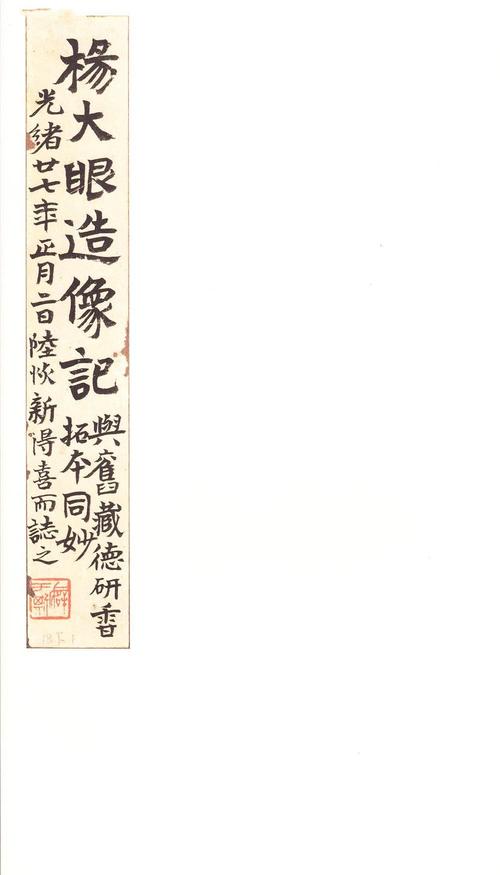 楊大眼造像記
與舊藏德研香
拓本同妙
光緒廿七年正月二日陸恢新得喜而誌之